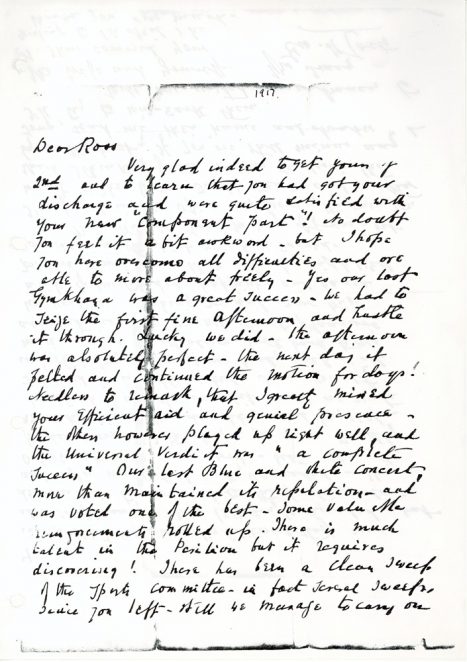 1917.
Dear Ross
Very glad indeed to get yours of
2nd and to learn that you had got your
discharge and were quite satisfied with
your new "Component part"! No doubt
you feel it a bit awkward - but I hope
you have overcome all difficulties and are
able to move about freely - Yes our last
Gymkhana was a great success - we had to
seize the first fine afternoon and hustle
it through. Lucky we did - the afternoon
was absolutely perfect - the next day it
pelted and continued the motion for days!
Needless to remark, that I greatly missed
your efficient aid and genial presence -
the others however played up right well, and
the Universal Verdict was "a complete
success" Our last Blue and White Concert,
more than maintained its reputation - and
was voted one of the best - Some valuable
reinforcements rolled up. There is much
talent in the Position but it requires
discovering! There has been a clean sweep
of the Sports committee - in fact several sweeps,
since you left - Still we manage to carry on